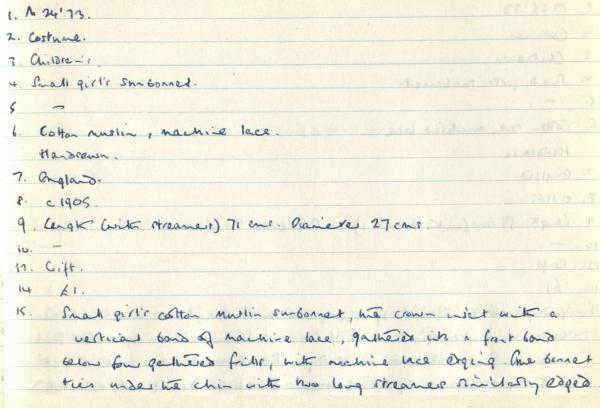 1. M 24'73.
2. Costume.
3. Children's.
4. Small girl's sunbonnet.
5 –
6. Cotton muslin, machine lace.
Handsewn.
7. England.
8. c 1905.
9. Length (with streamers) 71 cms. Diameter 27 cms.
10. –
13. Gift.
14 £1.
15. Small girl's cotton muslin sunbonnet, the crown inset with a
vertical band of machine lace, gathered into a front band
below four gathered frills, with machine lace edging. The bonnet
ties under the chin with two long streamers similarly edged